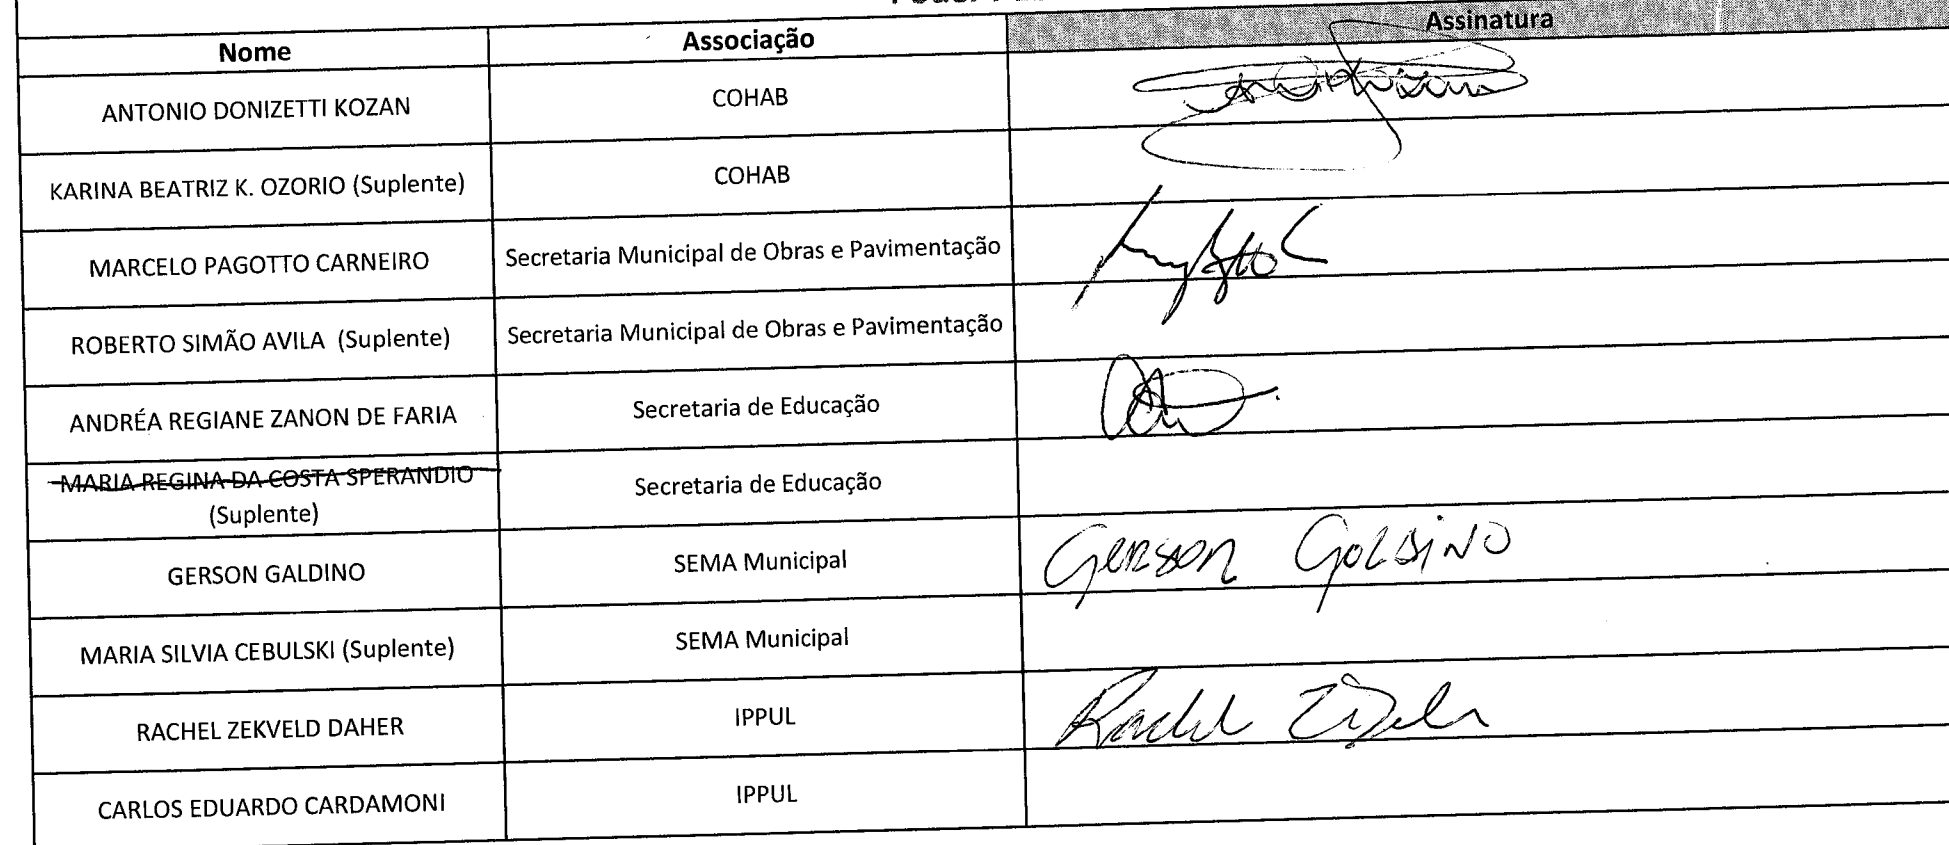 Nome Associação Assinatura
ANTONIO DONIZETTI KOZAN COHAB
KARINA BEATRIZ K. OZORIO (Suplente) COHAB
MARCELO PAGOTTO CARNEIRO Secretaria Municipal de Obras e Pavimentação
ROBERTO SIMÃO AVILA (Suplente) Secretaria Municipal de Obras e Pavimentação
ANDRÉA REGIANE ZANON DE FARIA Secretaria de Educação
MARIA REGINA DA COSTA SPERANDIO
(Suplente) Secretaria de Educação
GERSON GALDINO SEMA Municipal Gerson Galdino
MARIA SILVIA CEBULSKI (Suplente) SEMA Municipal
RACHEL ZEKVELD DAHER IPPUL Rachel
CARLOS EDUARDO CARDAMONI IPPUL